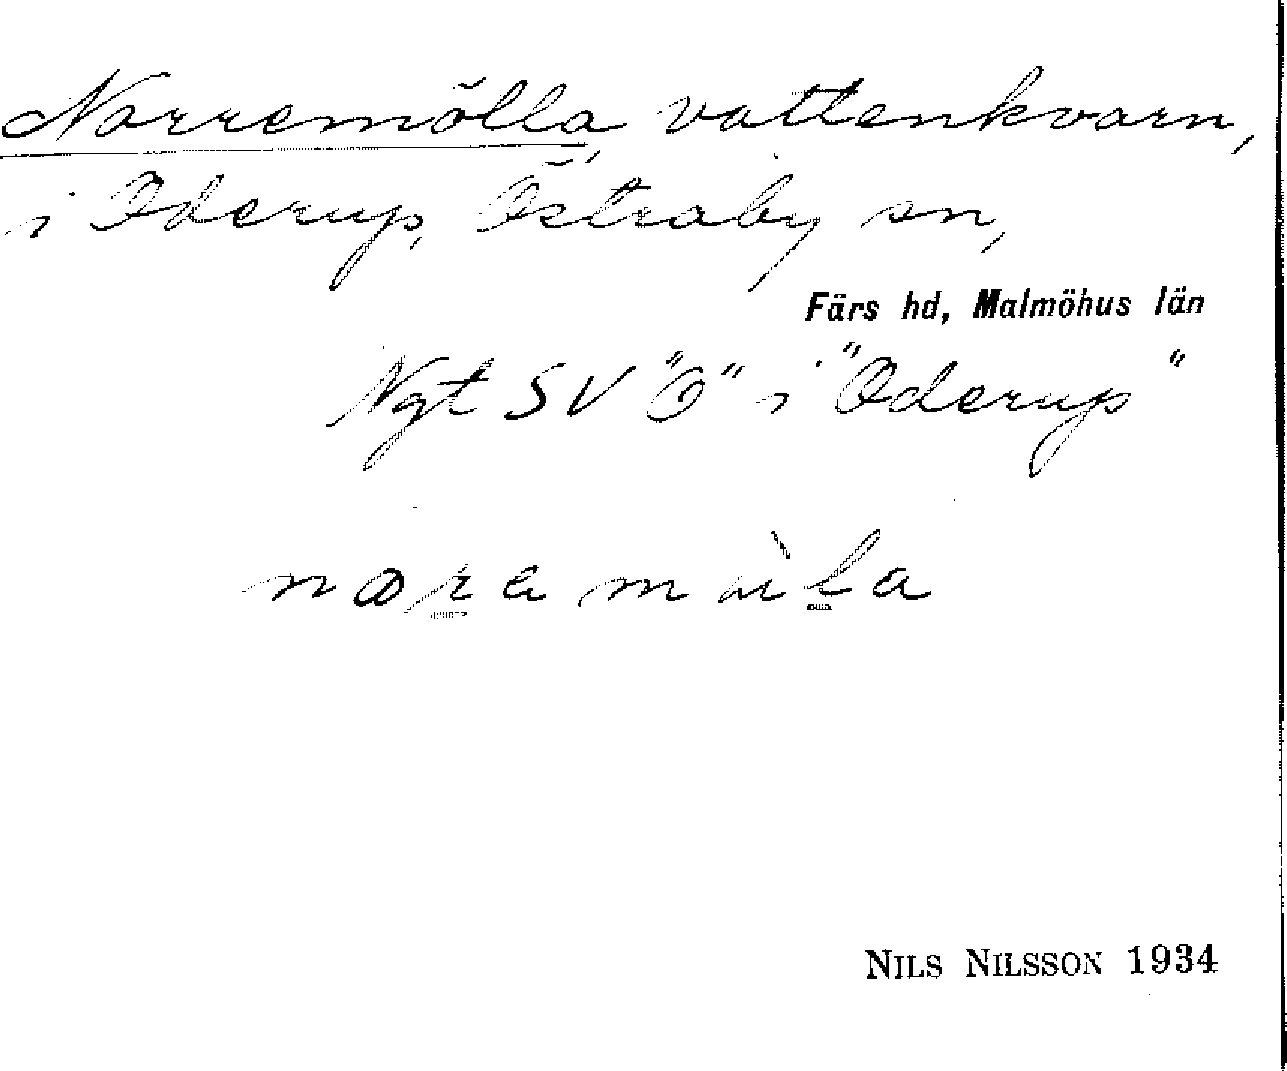 Norremölla, vattenkvarn,
i Oderup, Östraby sn,
Färs hd, Malmöhus län
Ngt SV "O" i "Oderup"
NILS NILSSON 1934